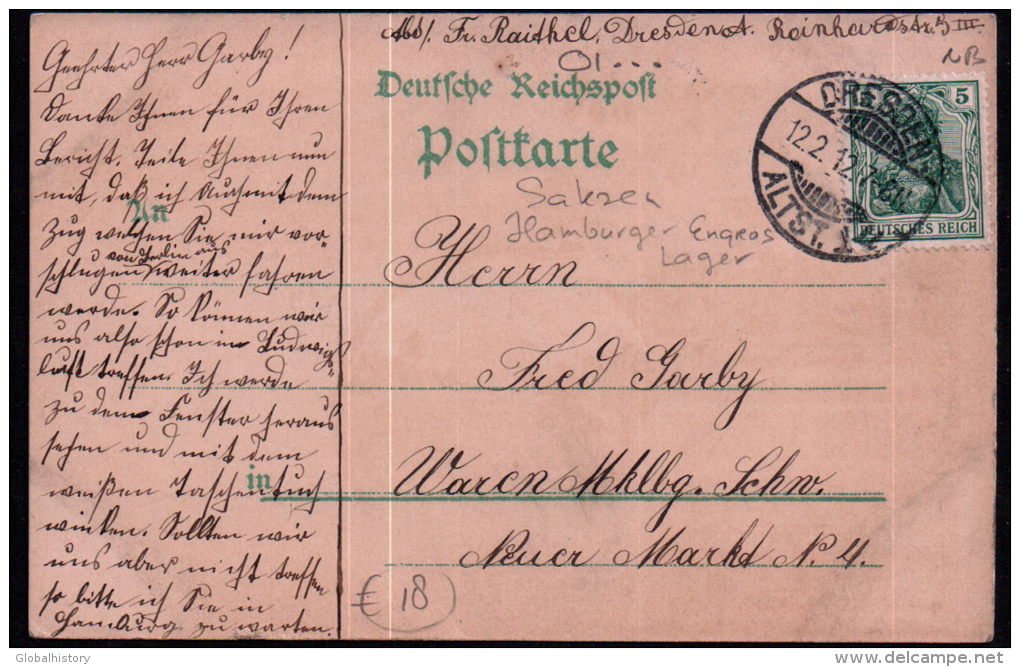 Abs/. Fr. Raithel, Dresden A. Reinhardstr. 5 III.
01...
NB
Deutsche Reichspost
Postkarte
5
DEUTSCHES REICH
DRESDEN
12.2.12. 7-8N.
ALTST.
Saksen
Hamburger Engros
Lager
An
Herrn
Fred Garby
in
Waren Mklbg. Schw.
Neuer Markt N. 4.
€ 18
Geehrter Herr Garby!
Danke Ihnen für Ihren
Bericht. Teile Ihnen nun
mit, daß ich auch mit dem
Zug welchen Sie mir vor-
schlugen von Berlin aus weiter fahren
werde. So können wir
uns also schon in Ludwigs-
lust treffen. Ich werde
zu dem Fenster heraus
sehen und mit dem
weißen Taschentuch
winken. Sollten wir
uns aber nicht treffen
so bitte ich Sie in
Hamburg zu warten.
Globalhistory
delcampe.net